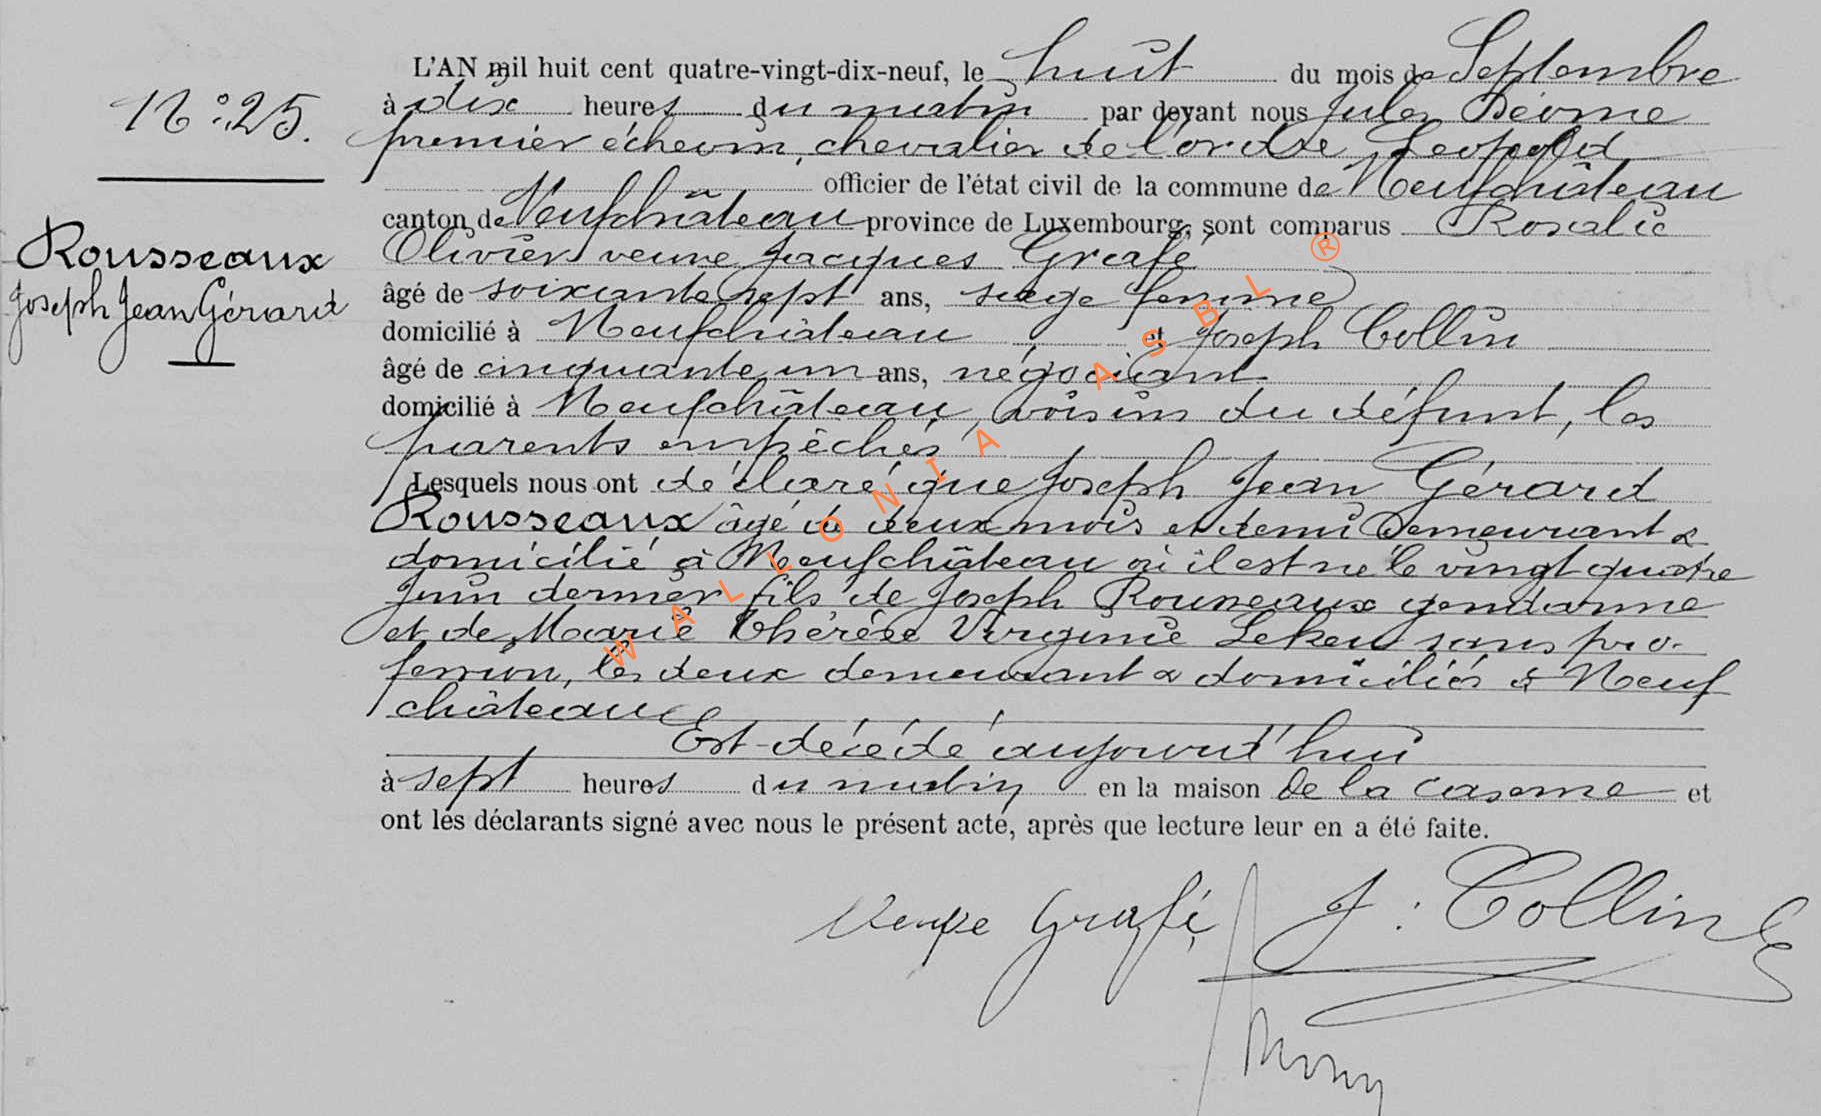 N° 25.
Rousseaux
Joseph Jean Gérard
L'AN mil huit cent quatre-vingt-dix-neuf, le huit du mois de Septembre
à dix heures du matin par devant nous Jules
premier échevin, chevalier de l'ordre Léopold
officier de l'état civil de la commune de Neufchâteau
canton de Neufchâteau province de Luxembourg, sont comparus Rosalie
Olivier veuve Jacques Grafé
âgé de soixante sept ans, sage femme
domicilié à Neufchâteau et Joseph Collin
âgé de cinquante un ans, négociant
domicilié à Neufchâteau, voisins du défunt, les
parents empêchés
Lesquels nous ont déclaré que Joseph Jean Gérard
Rousseaux âgé de deux mois et demi demeurant &
domicilié à Neufchâteau où il est né le vingt quatre
Juin dernier fils de Joseph Rousseaux gendarme
et de Marie Thérèse Virginie Lekeu sans pro-
fession, les deux demeurant & domiciliés à Neuf
château
Est décédé aujourd'hui
à sept heures du matin en la maison de la caserne et
ont les déclarants signé avec nous le présent acte, après que lecture leur en a été faite.
Veuve Grafé J. Collin
WALLONIA ASBL ®